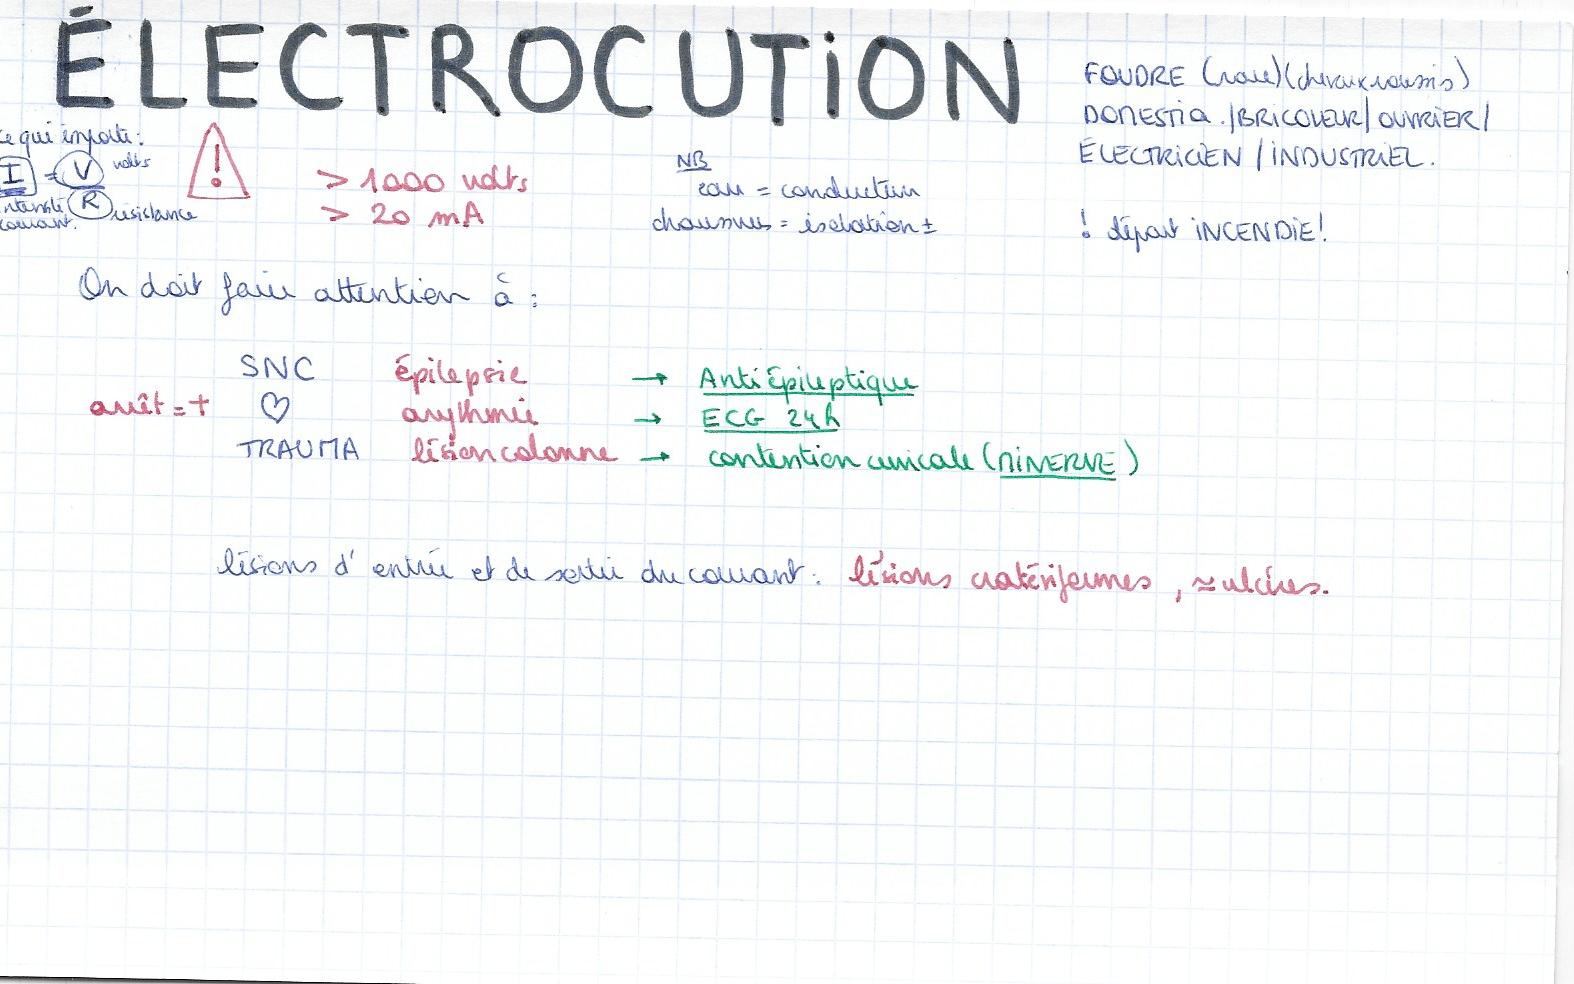 ÉLECTROCUTION
FOUDRE (rare) (cheveux roussis)
DOMESTIQ. / BRICOLEUR / OUVRIER /
ÉLECTRICIEN / INDUSTRIEL.
! départ INCENDIE!
ce qui importe:
I = V volts
R résistance
intensité
courant.
!
> 1000 volts
> 20 mA
NB
eau = conducteur
chaussures = isolation ±
On doit faire attention à :
SNC épilepsie → Antiépileptique
arrêt = † ♡ arythmie → ECG 24h
TRAUMA lésion colonne → contention cervicale (MINERVE)
lésions d'entrée et de sortie du courant : lésions cratériformes, ≈ ulcères.